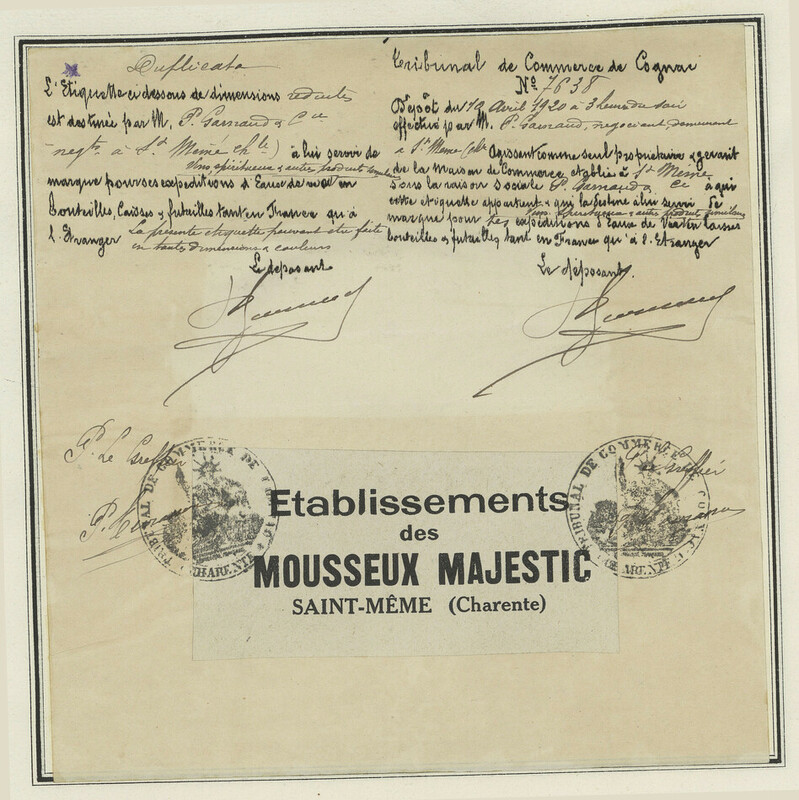 Duplicata
L'Etiquette ci dessous de dimensions reduites
est destinée par M. P. Garnaud & Cie
negts à St Même (Chte) à lui servir de
Vins spiritueux & autres produits similaires
marque pour ses expéditions d'Eaux de vie en
bouteilles, Caisses & futailles tant en France qu'à
l'Etranger La présente étiquette pouvant être faite
en toutes dimensions & couleurs
Le déposant
Tribunal de Commerce de Cognac
No 7638
Dépôt du 12 Avril 1920 à 3 heures du soir
effectué par M. P. Garnaud, négociant, demeurant
à St Même (Chte) Agissant comme seul propriétaire & gérant
de la Maison de Commerce établie à St Même
sous la raison sociale P. Garnaud & Cie à qui
cette étiquette appartient & qui la destine à lui servir de
vins, spiritueux & autres produits similaires
marque pour ses expéditions d'Eaux de Vie en Caisses
bouteilles & futailles tant en France qu'à l'Etranger
Le déposant.
P. Le Greffier
P. Le Greffier
TRIBUNAL DE COMMERCE DE COGNAC
CHARENTE
TRIBUNAL DE COMMERCE DE COGNAC
CHARENTE
Etablissements
des
MOUSSEUX MAJESTIC
SAINT-MÊME (Charente)